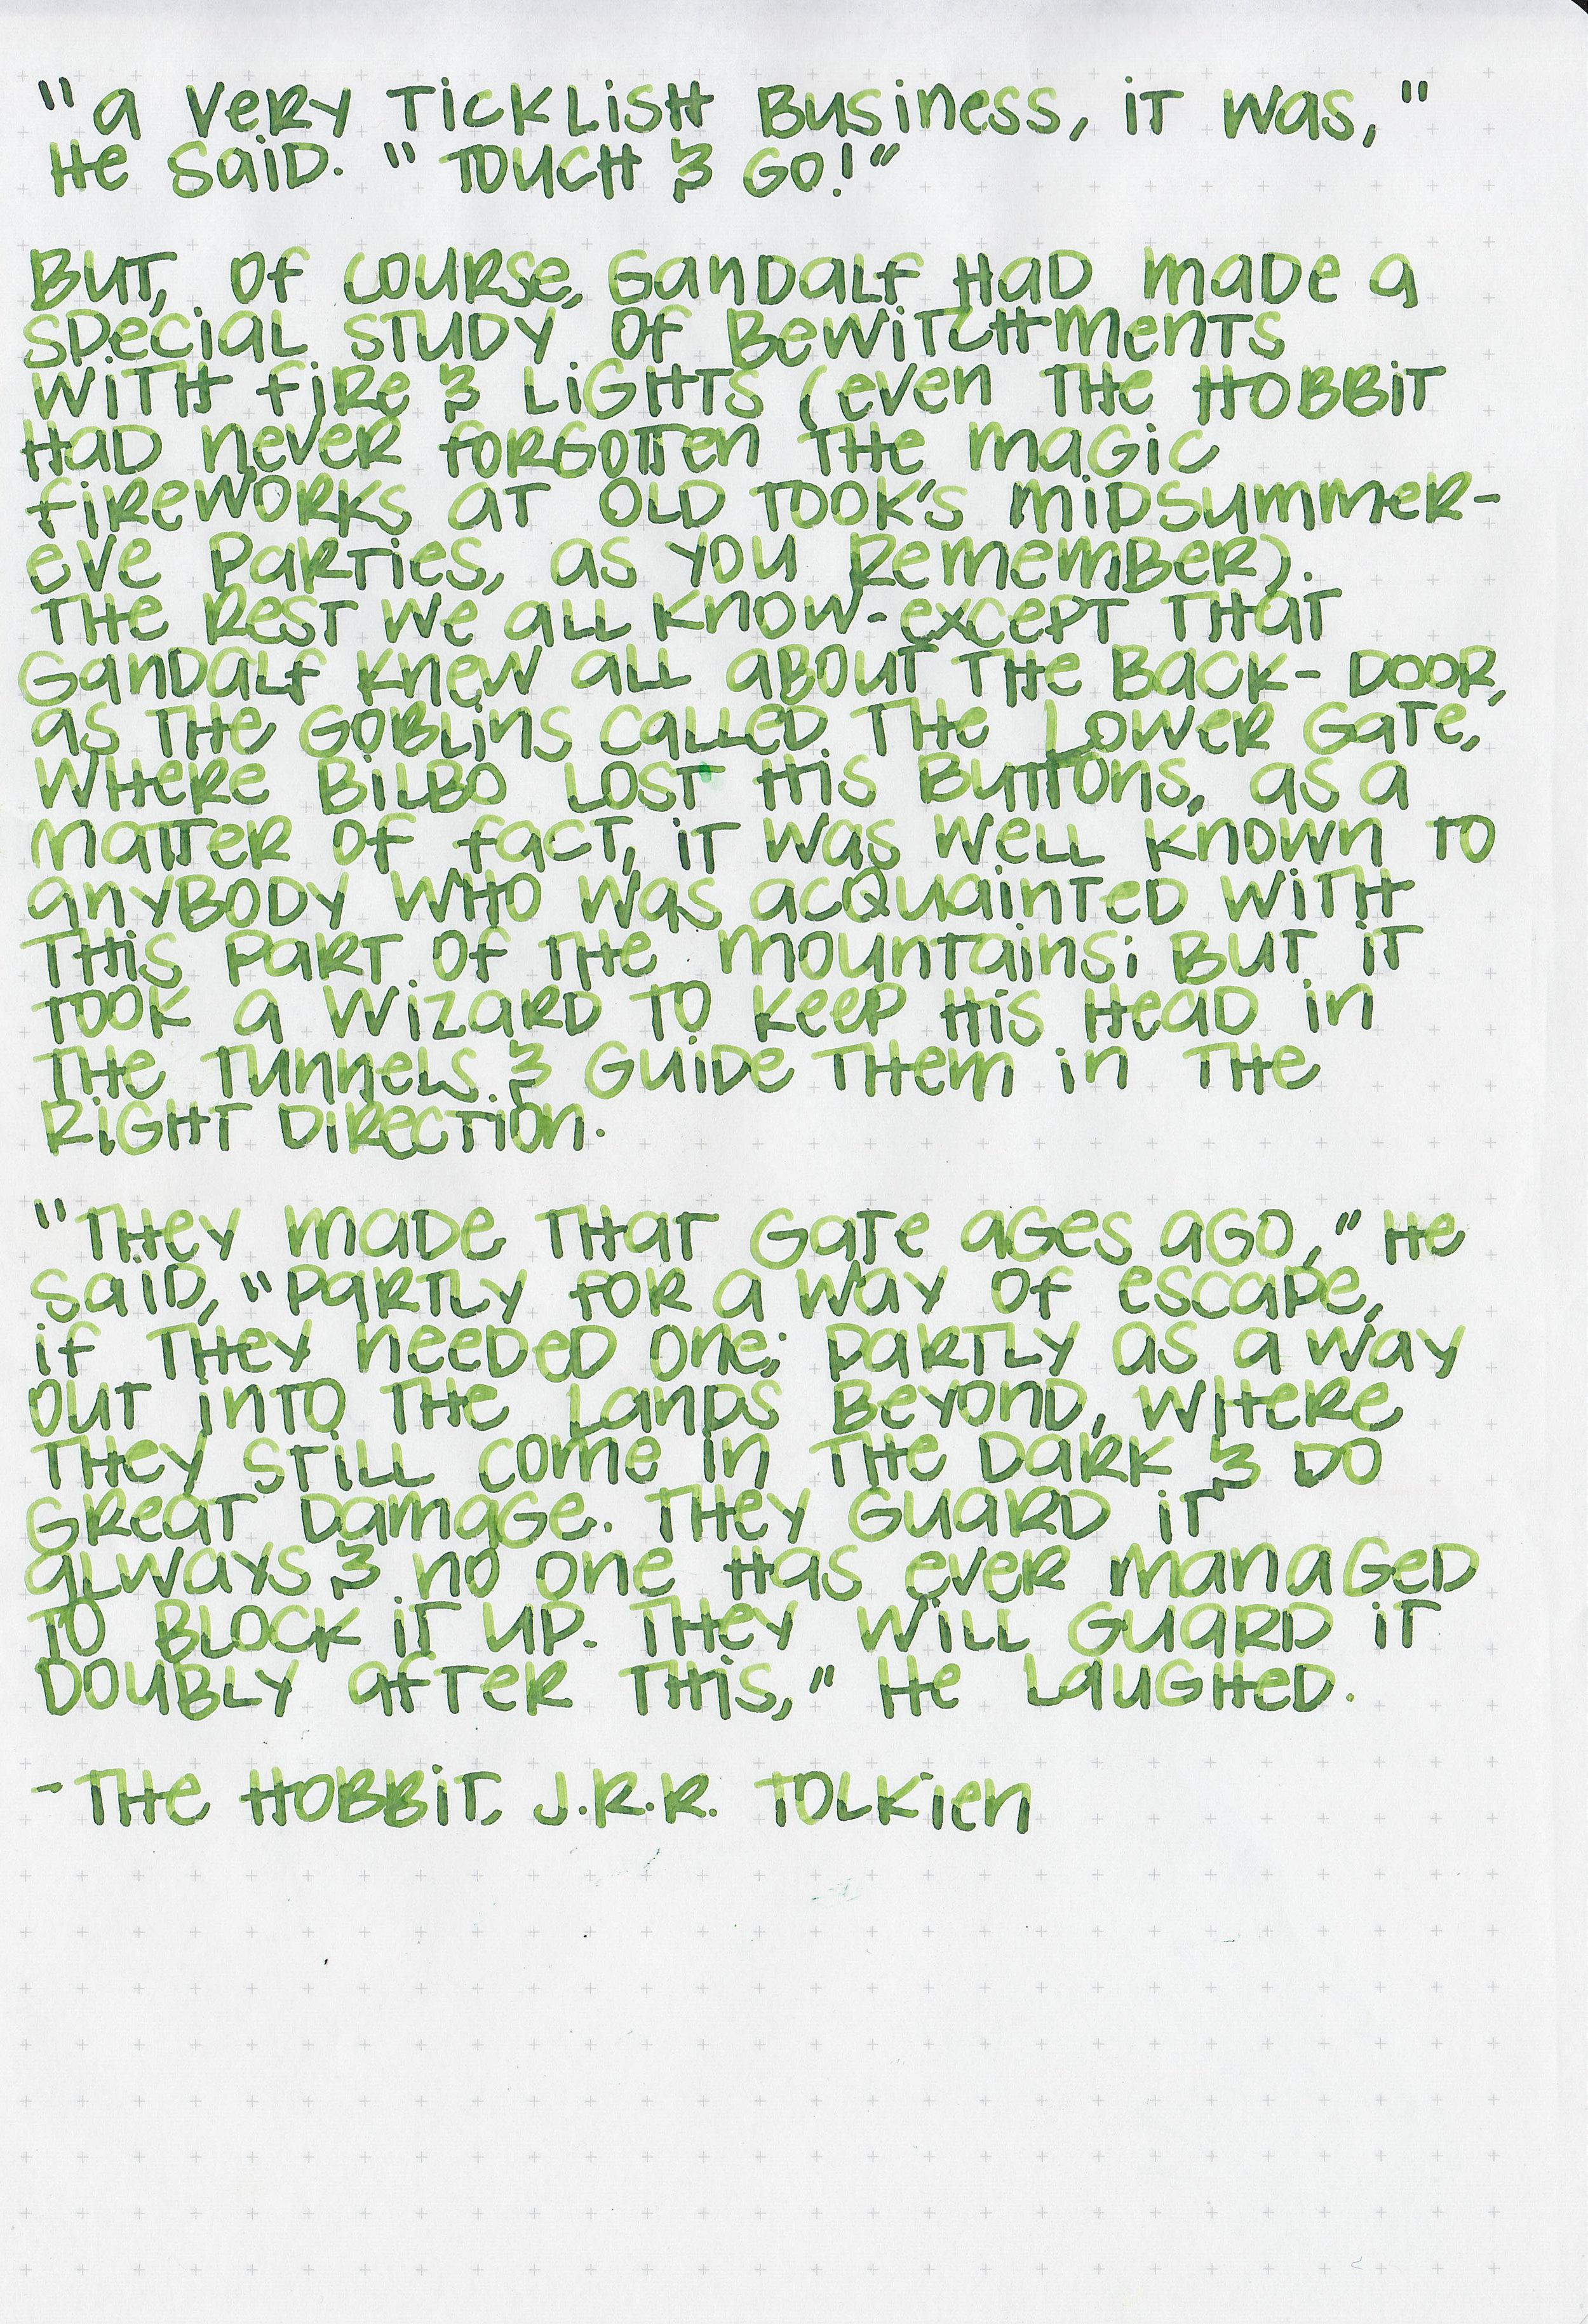 "a very ticklish business, it was,"
he said. "Touch & go!"
But, of course, Gandalf had made a
special study of bewitchments
with fire & lights (even the hobbit
had never forgotten the magic
fireworks at Old Took's midsummer-
eve parties, as you remember).
The rest we all know-except that
Gandalf knew all about the back-door,
as the goblins called the Lower Gate,
where Bilbo lost his buttons, as a
matter of fact, it was well known to
anybody who was acquainted with
this part of the mountains; but it
took a wizard to keep his head in
the tunnels & guide them in the
right direction.
"They made that gate ages ago," he
said, "partly for a way of escape,
if they needed one; partly as a way
out into the lands beyond, where
they still come in the dark & do
great damage. They guard it
always & no one has ever managed
to block it up. They will guard it
doubly after this," he laughed.
-The Hobbit, J.R.R. Tolkien